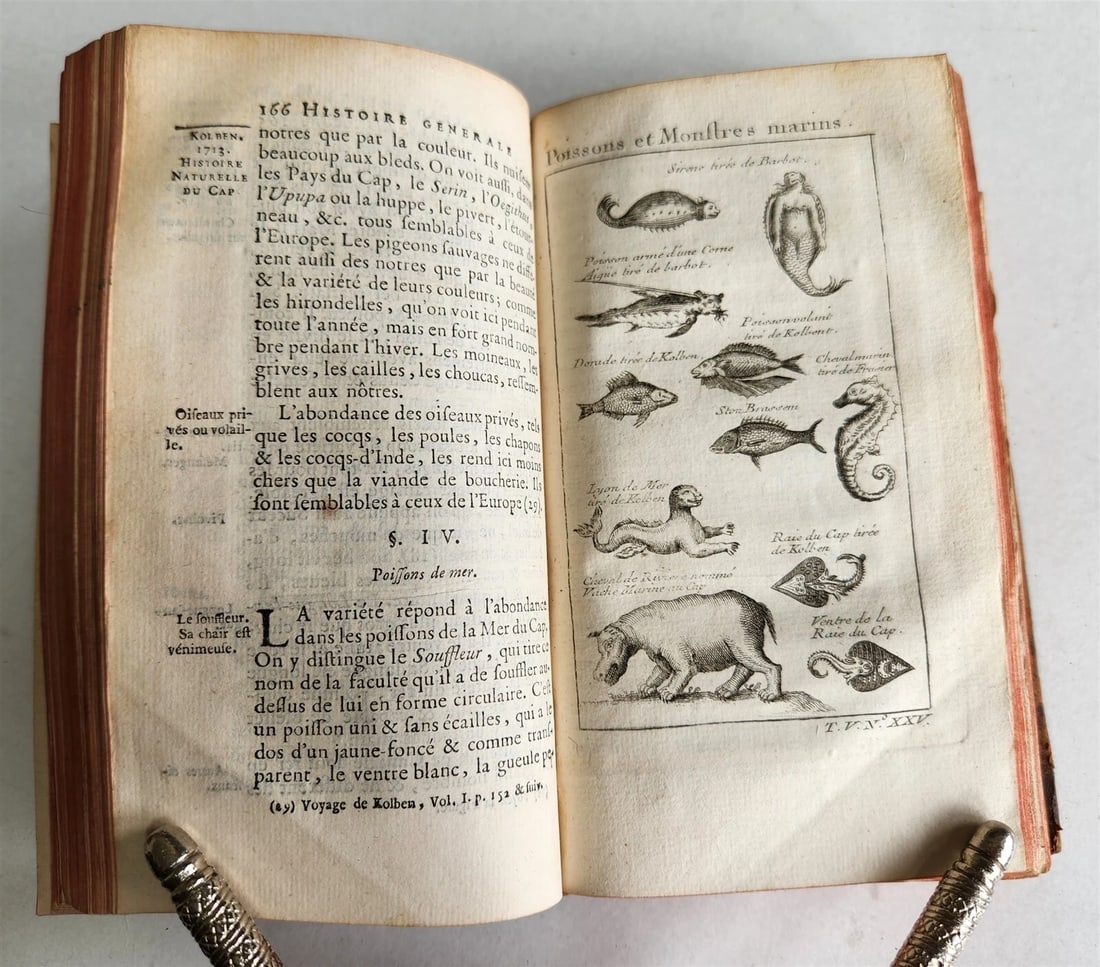 166 HISTOIRE GENERALE
KOLBEN.
1713.
HISTOIRE
NATURELLE
DU CAP.
notres que par la couleur. Ils nuisent
beaucoup aux bleds. On voit aussi, dans
les Pays du Cap, le Serin, l'Oegithus
l'Upupa ou la huppe, le pivert, l'étour-
neau, &c. tous semblables à ceux de
l'Europe. Les pigeons sauvages ne diffe-
rent aussi des notres que par la beauté
& la variété de leurs couleurs; comme
les hirondelles, qu'on voit ici pendant
toute l'année, mais en fort grand nom-
bre pendant l'hiver. Les moineaux, les
grives, les cailles, les choucas, ressem-
blent aux nôtres.
Oiseaux pri-
vés ou volail-
le.
L'abondance des oiseaux privés, tels
que les cocqs, les poules, les chapons
& les cocqs-d'Inde, les rend ici moins
chers que la viande de boucherie. Ils
sont semblables à ceux de l'Europe (29).
§. IV.
Poissons de mer.
Le souffleur.
Sa chair est
vénimeuse.
LA variété répond à l'abondance
dans les poissons de la Mer du Cap.
On y distingue le Souffleur, qui tire ce
nom de la faculté qu'il a de souffler au-
dessus de lui en forme circulaire. C'est
un poisson uni & sans écailles, qui a le
dos d'un jaune-foncé & comme trans-
parent, le ventre blanc, la gueule pe-
(29) Voyage de Kolben, Vol. I. p. 152 & suiv.
Poissons et Monstres marins.
Sirene tirée de Barbot.
Poisson armé d'une Corne
Aigüe tiré de barbot.
Poisson volant
tiré de Kolbent.
Dorade tirée de Kolben.
Cheval marin
tiré de Frasier
Stou Brassem
Lyon de Mer
tiré de Kolben
Raie du Cap tirée
de Kolben
Cheval de Riviere nommé
Vache Marine au Cap
Ventre de la
Raie du Cap.
T. V. N.º XXV.